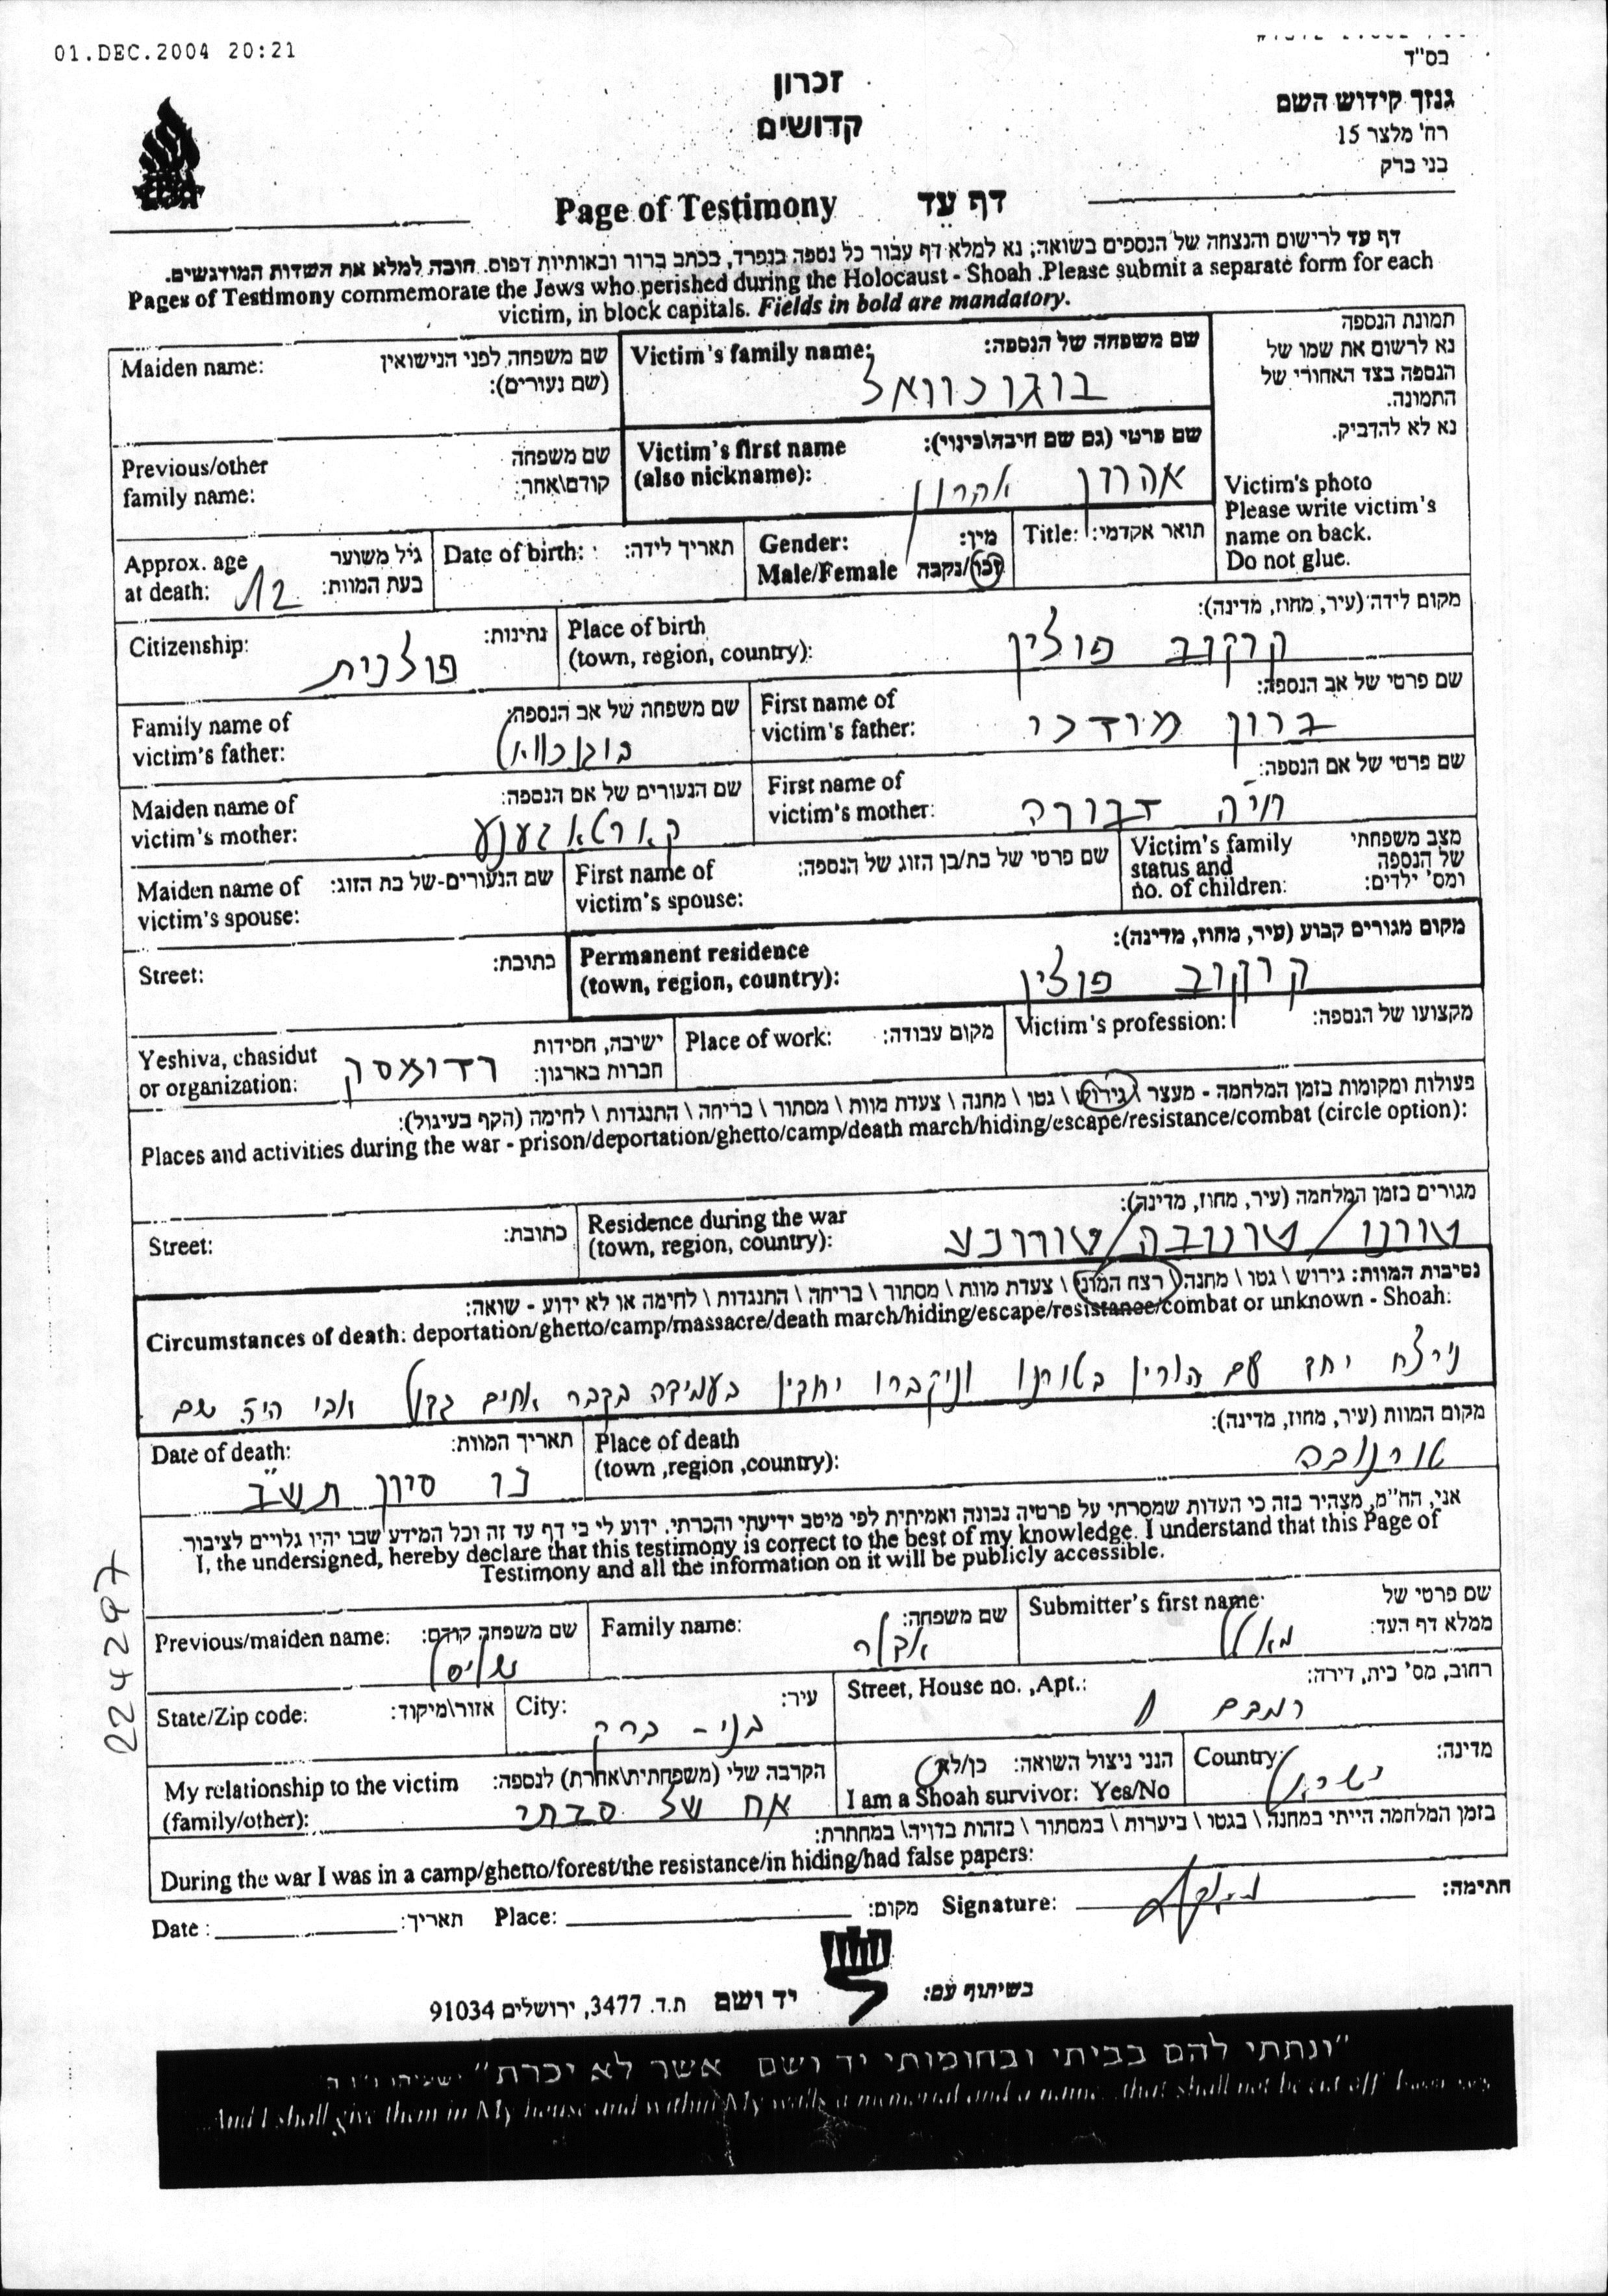 01.DEC.2004 20:21
בס"ד
גנזך קידוש השם
רח' מלצר 15
בני ברק
זכרון
קדושים
Page of Testimony דף עד
דף עד לרישום והנצחה של הנספים בשואה; נא למלא דף עבור כל נספה בנפרד, בכתב ברור ובאותיות דפוס. חובה למלא את השדות המודגשים.
Pages of Testimony commemorate the Jews who perished during the Holocaust - Shoah .Please submit a separate form for each
victim, in block capitals. Fields in bold are mandatory.
תמונת הנספה
נא לרשום את שמו של
הנספה בצד האחורי של
התמונה.
נא לא להדביק.
Victim's photo
Please write victim's
name on back.
Do not glue.
Victim's family name: שם משפחה של הנספה:
בוגוכוואל
Maiden name: שם משפחה לפני הנישואין
(שם נעורים):
Victim's first name שם פרטי (גם שם חיבה\כינוי):
(also nickname): אהרון אהרון
Previous/other שם משפחה
family name: קודם\אחר:
Title: תואר אקדמי:
Gender: מין:
Male/Female זכר/נקבה
Date of birth: תאריך לידה:
Approx. age גיל משוער
at death: בעת המוות: 12
Place of birth מקום לידה (עיר, מחוז, מדינה):
(town, region, country): קרקוב פולין
Citizenship: נתינות:
פולנית
First name of שם פרטי של אב הנספה:
victim's father: ברוך מרדכי
Family name of שם משפחה של אב הנספה:
victim's father: בוגוכוואל
First name of שם פרטי של אם הנספה:
victim's mother: חיה דבורה
Maiden name of שם הנעורים של אם הנספה:
victim's mother: קארטאגענע
Victim's family מצב משפחתי
status and של הנספה
no. of children: ומס' ילדים:
First name of שם פרטי של בת/בן הזוג של הנספה:
victim's spouse:
Maiden name of שם הנעורים-של בת הזוג:
victim's spouse:
Permanent residence מקום מגורים קבוע (עיר, מחוז, מדינה):
(town, region, country): קרקוב פולין
Street: כתובת:
Victim's profession: מקצועו של הנספה:
Place of work: מקום עבודה:
Yeshiva, chasidut ישיבה, חסידות
or organization: חברות בארגון: רדומסק
פעולות ומקומות בזמן המלחמה - מעצר \ גירוש \ גטו \ מחנה \ צעדת מוות \ מסתור \ בריחה \ התנגדות \ לחימה (הקף בעיגול):
Places and activities during the war - prison/deportation/ghetto/camp/death march/hiding/escape/resistance/combat (circle option):
Residence during the war מגורים בזמן המלחמה (עיר, מחוז, מדינה):
(town, region, country): טורנו / טרנובה / טורנע
Street: כתובת:
נסיבות המוות: גירוש \ גטו \ מחנה \ רצח המוני \ צעדת מוות \ מסתור \ בריחה \ התנגדות \ לחימה או לא ידוע - שואה:
Circumstances of death: deportation/ghetto/camp/massacre/death march/hiding/escape/resistance/combat or unknown - Shoah:
נירצח יחד עם הוריו בטורנו וניקברו יחדיו בעמידה בקבר אחים גדול אבי היה שם
Place of death מקום המוות (עיר, מחוז, מדינה):
(town ,region ,country): טורנובה
Date of death: תאריך המוות:
כו סיון תש"ב
אני, הח"מ, מצהיר בזה כי העדות שמסרתי על פרטיה נכונה ואמיתית לפי מיטב ידיעתי והכרתי. ידוע לי כי דף עד זה וכל המידע שבו יהיו גלויים לציבור.
I, the undersigned, hereby declare that this testimony is correct to the best of my knowledge. I understand that this Page of
Testimony and all the information on it will be publicly accessible.
Submitter's first name: שם פרטי של
ממלא דף העד:
Family name: שם משפחה:
Previous/maiden name: שם משפחה קודם:
Street, House no. ,Apt.: רחוב, מס' בית, דירה:
רמבם 1
City: עיר:
בני - ברק
State/Zip code: אזור\מיקוד:
Country: מדינה:
ישראל
הנני ניצול השואה: כן/לא
I am a Shoah survivor: Yes/No
My relationship to the victim הקרבה שלי (משפחתית\אחרת) לנספה:
(family/other): אח של סבתי
בזמן המלחמה הייתי במחנה \ בגטו \ ביערות \ במסתור \ בזהות בדויה\ במחתרת:
During the war I was in a camp/ghetto/forest/the resistance/in hiding/had false papers:
Date : תאריך: Place: מקום: Signature: חתימה:
בשיתוף עם: יד ושם ת.ד. 3477, ירושלים 91034
"ונתתי להם בביתי ובחומותי יד ושם אשר לא יכרת" ישעיהו נ"ו ה'
And I shall give them in My house and within My walls a memorial and a name, that shall not be cut off
224297